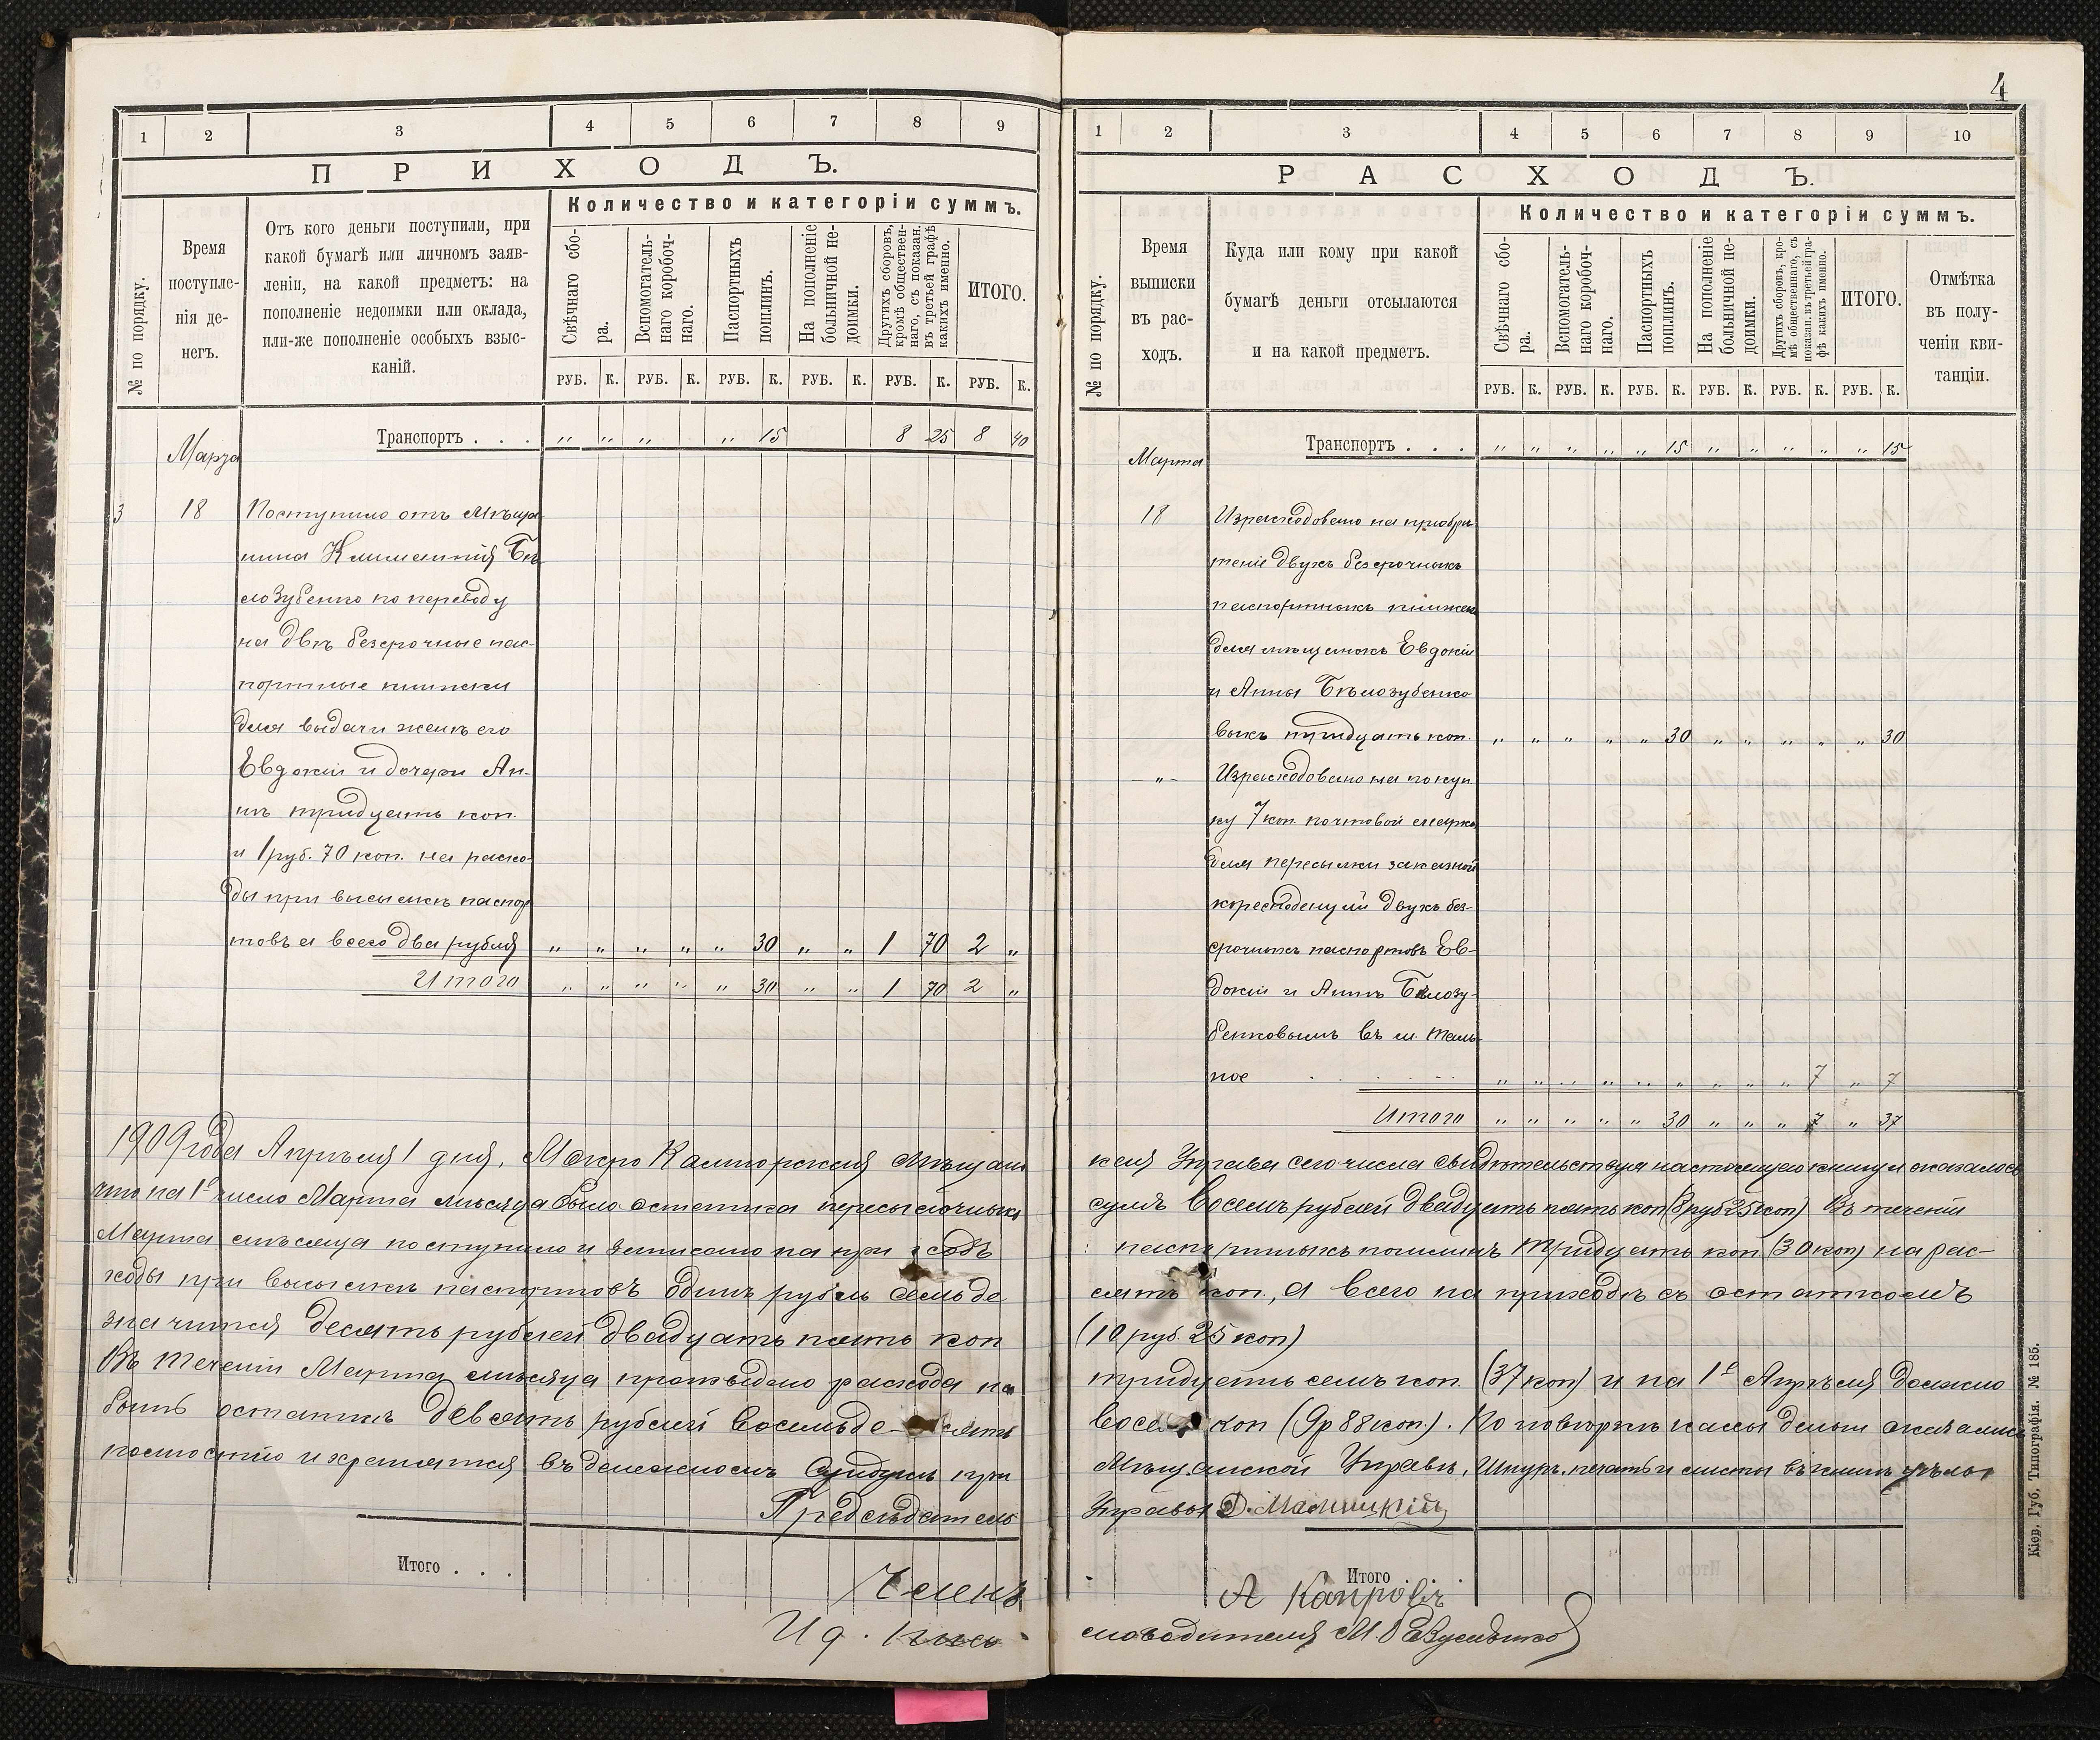 4
1 2 3 4 5 6 7 8 9
ПРИХОДЪ.
№ по порядку.
Время поступле-
нія де-
негъ.
Отъ кого деньги поступили, при
какой бумагѣ или личномъ заяв-
леніи, на какой предметъ: на
пополненіе недоимки или оклада,
или-же пополненіе особыхъ взыс-
каній.
Количество и категоріи суммъ.
Свѣчнаго сбо-
ра.
Вспомогатель-
наго коробоч-
наго.
Паспортныхъ
пошлинъ.
На пополненіе
больничной не-
доимки.
Другихъ сборовъ,
кромѣ обществен-
наго, съ показан.
въ третьей графѣ
какихъ именно.
ИТОГО.
РУБ. К. РУБ. К. РУБ. К. РУБ. К. РУБ. К. РУБ. К.
Транспортъ . . . „ „ „ „ 15 8 25 8 40
Марта
3 18 Поступило отъ мѣща
нина Климентія Бѣ
лозубенко по переводу
на двѣ безсрочные пас-
портные книжки
для выдачи женѣ его
Евдокіи и дочери Ан-
нѣ тридцать коп.
и 1 руб. 70 коп. на расхо-
ды при высылкѣ паспор
товъ а всего два рубля „ „ „ „ „ 30 „ „ 1 70 2 „
Итого „ „ „ „ „ 30 „ „ 1 70 2 „
1 2 3 4 5 6 7 8 9 10
РАСХОДЪ.
№ по порядку.
Время
выписки
въ рас-
ходъ.
Куда или кому при какой
бумагѣ деньги отсылаются
и на какой предметъ.
Количество и категоріи суммъ.
Свѣчнаго сбо-
ра.
Вспомогатель-
наго коробоч-
наго.
Паспортныхъ
пошлинъ.
На пополненіе
больничной не-
доимки.
Другихъ сборовъ, кро-
мѣ общественнаго, съ
показан. въ третьей гра-
фѣ какихъ именно.
ИТОГО.
Отмѣтка
въ полу-
ченіи кви-
танціи.
РУБ. К. РУБ. К. РУБ. К. РУБ. К. РУБ. К. РУБ. К.
Транспортъ . . . „ „ „ „ „ 15 „ „ „ „ „ 15
Марта
18 Израсходовано на приобрѣ
теніе двухъ безсрочныхъ
паспортныхъ книжек
для мѣщанокъ Евдокіи
и Анны Бѣлозубенко
выхъ тридцать коп. „ „ „ „ „ 30 „ „ „ „ „ 30
„ Израсходовано на покуп
ку 7 коп. почтовой марки
для пересылки заказной
коресподенціи двухъ без-
срочныхъ паспортовъ Ев-
докіи и Аннѣ Бѣлозу-
бенковымъ въ м. Таль-
ное „ „ „ „ „ „ „ „ „ 7 „ 7
Итого „ „ „ „ „ 30 „ „ „ 7 „ 37
1909 года Апрѣля 1 дня, Мокро Калигорская Мѣщанс
кая Управа сего числа свидѣтельствуя настоящую книгу оказалось
что на 1е число Марта мѣсяца было остатка пересылочныхъ
сумъ Восемь рублей двадцать пять коп (8 руб 25 коп) Въ теченіи
Марта мѣсяца поступило и записано на приходъ
паспортныхъ пошлинъ тридцать коп (30 коп) на рас-
ходы при высылкѣ паспортовъ одинъ рубль семьде
сятъ коп., а всего на приходѣ съ остаткомъ
значится десять рублей двадцать пять коп
(10 руб. 25 коп)
Въ теченіи Марта мѣсяца произведено расхода на
тридцать семь коп. (37 коп) и на 1е Апрѣля должно
быть остаткѣ девять рублей восемьде-сятъ
восемь коп (9 р 88 коп.). По повѣркѣ касы деньги оказались
полностію и хранятся въ денежномъ сундукѣ при
Мѣщанской Управѣ, Шнуръ. печать и листы въ книгѣ цѣлы
Предсѣдатель
Управы Д. Малицкій
Итого . . .
Итого
Членъ
А Капровъ
И д. пись
моводителя М.
Кіев. Губ. Типографія. № 185.